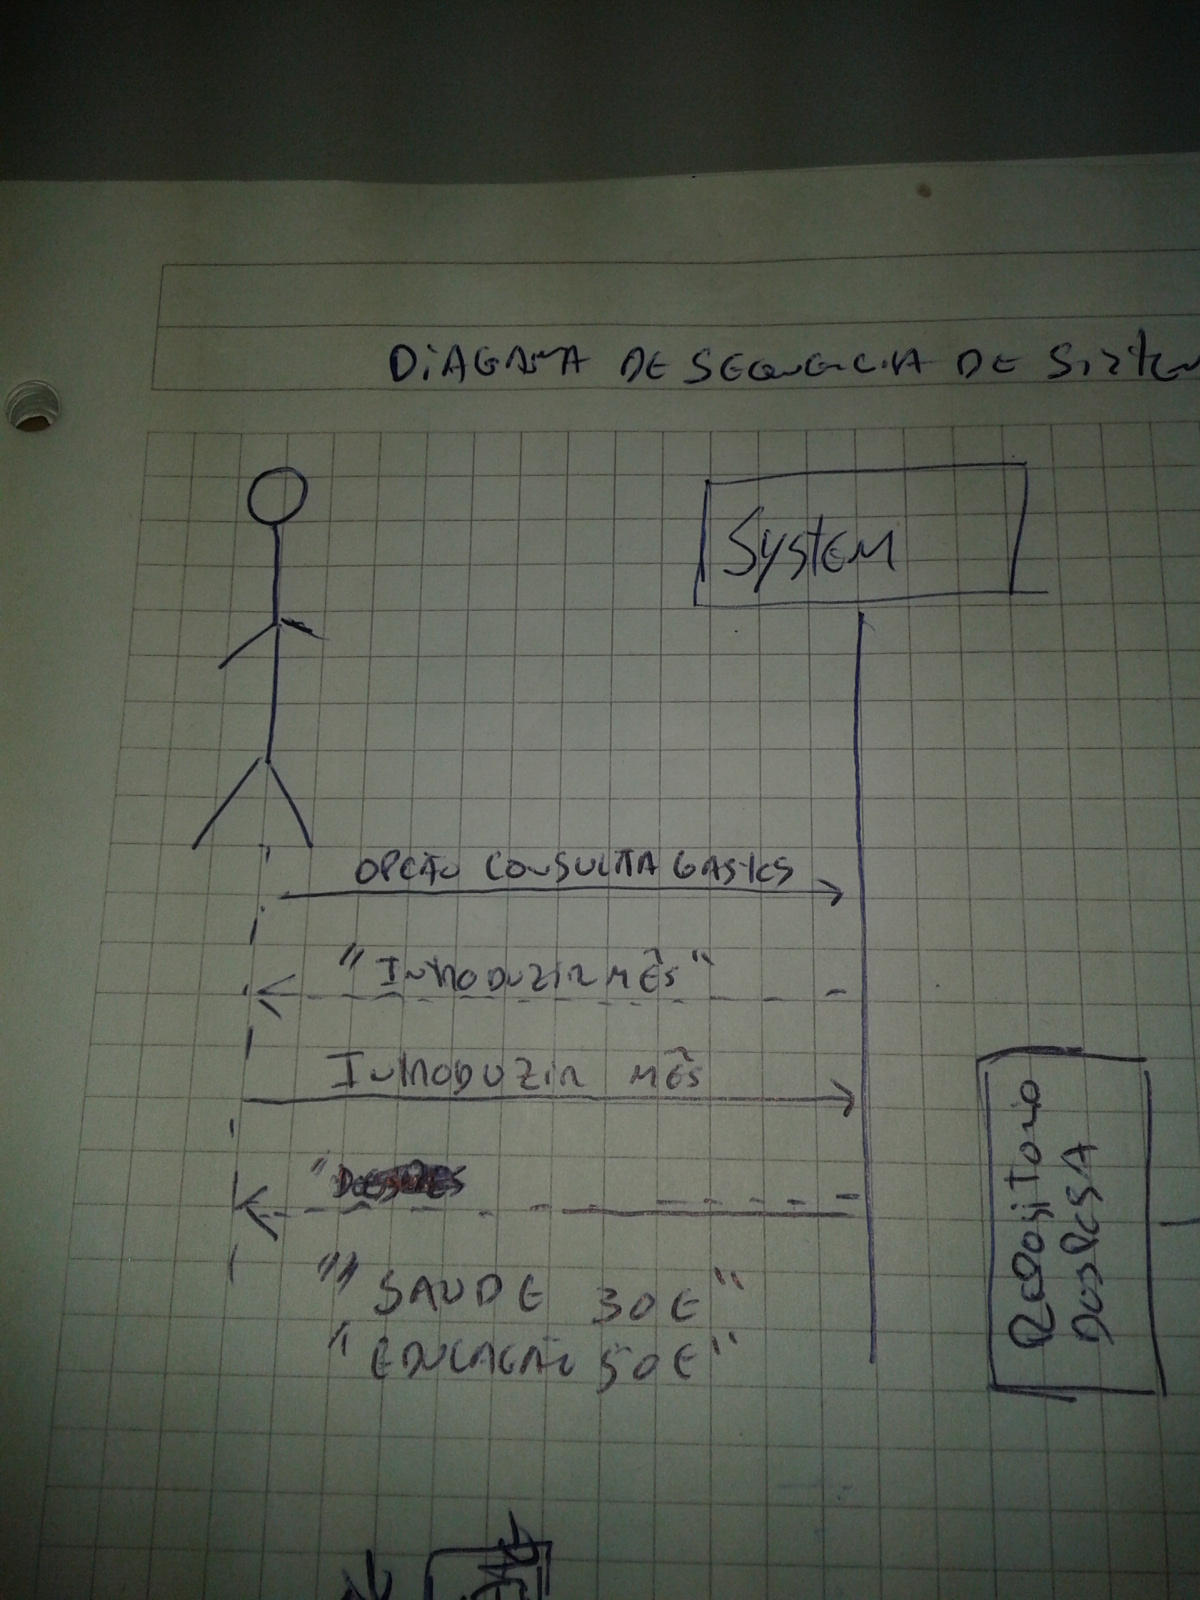 DIAGRAMA DE SEQUENCIA DE Sistem
System
OPÇÃO CONSULTA GASTOS
"INTRODUZIR MÊS"
INTRODUZIR MÊS
"
"" SAUDE 30€"
" EDUCAÇÃO 50€"
Repositorio
Despesa